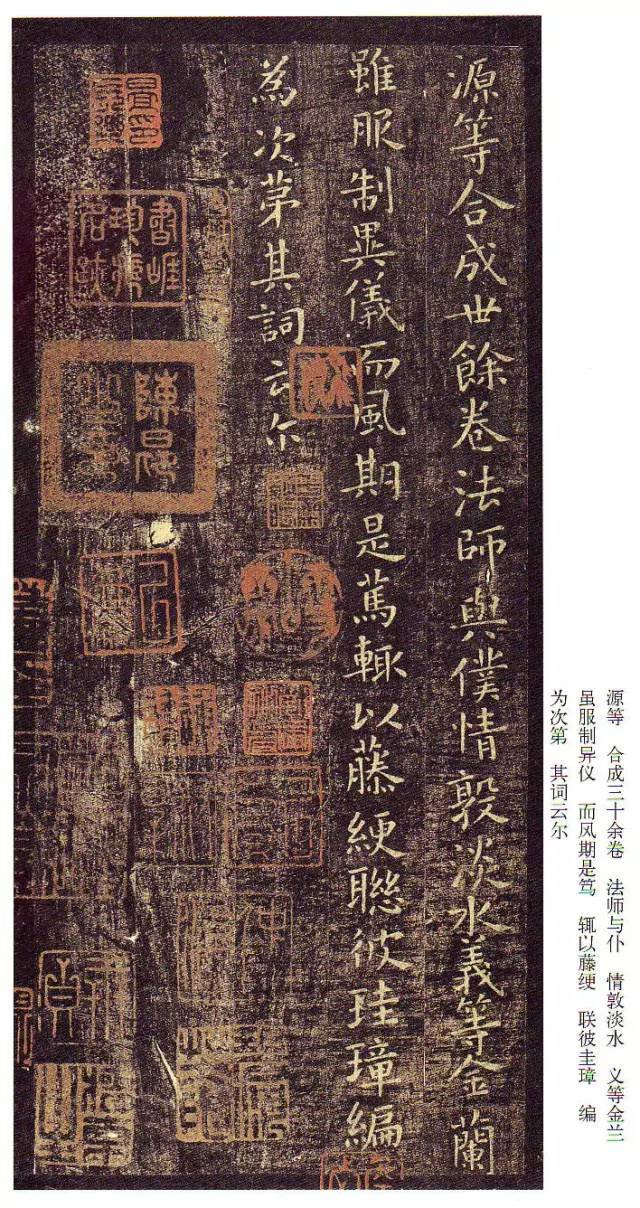 源等合成世餘卷法師與僕情敦淡水義等金蘭
雖服制異儀而風期是篤輙以藤綆聯彼珪璋編
為次第其詞云尔
源等 合成三十余卷 法师与仆 情敦淡水 义等金兰
虽服制异仪 而风期是笃 辄以藤绠 联彼圭璋 编
为次第 其词云尔